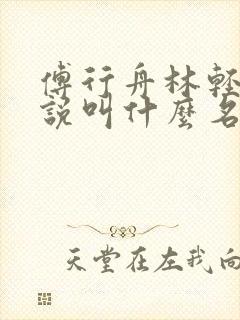 傅行舟林輕
說叫什麼名
天堂在左我向